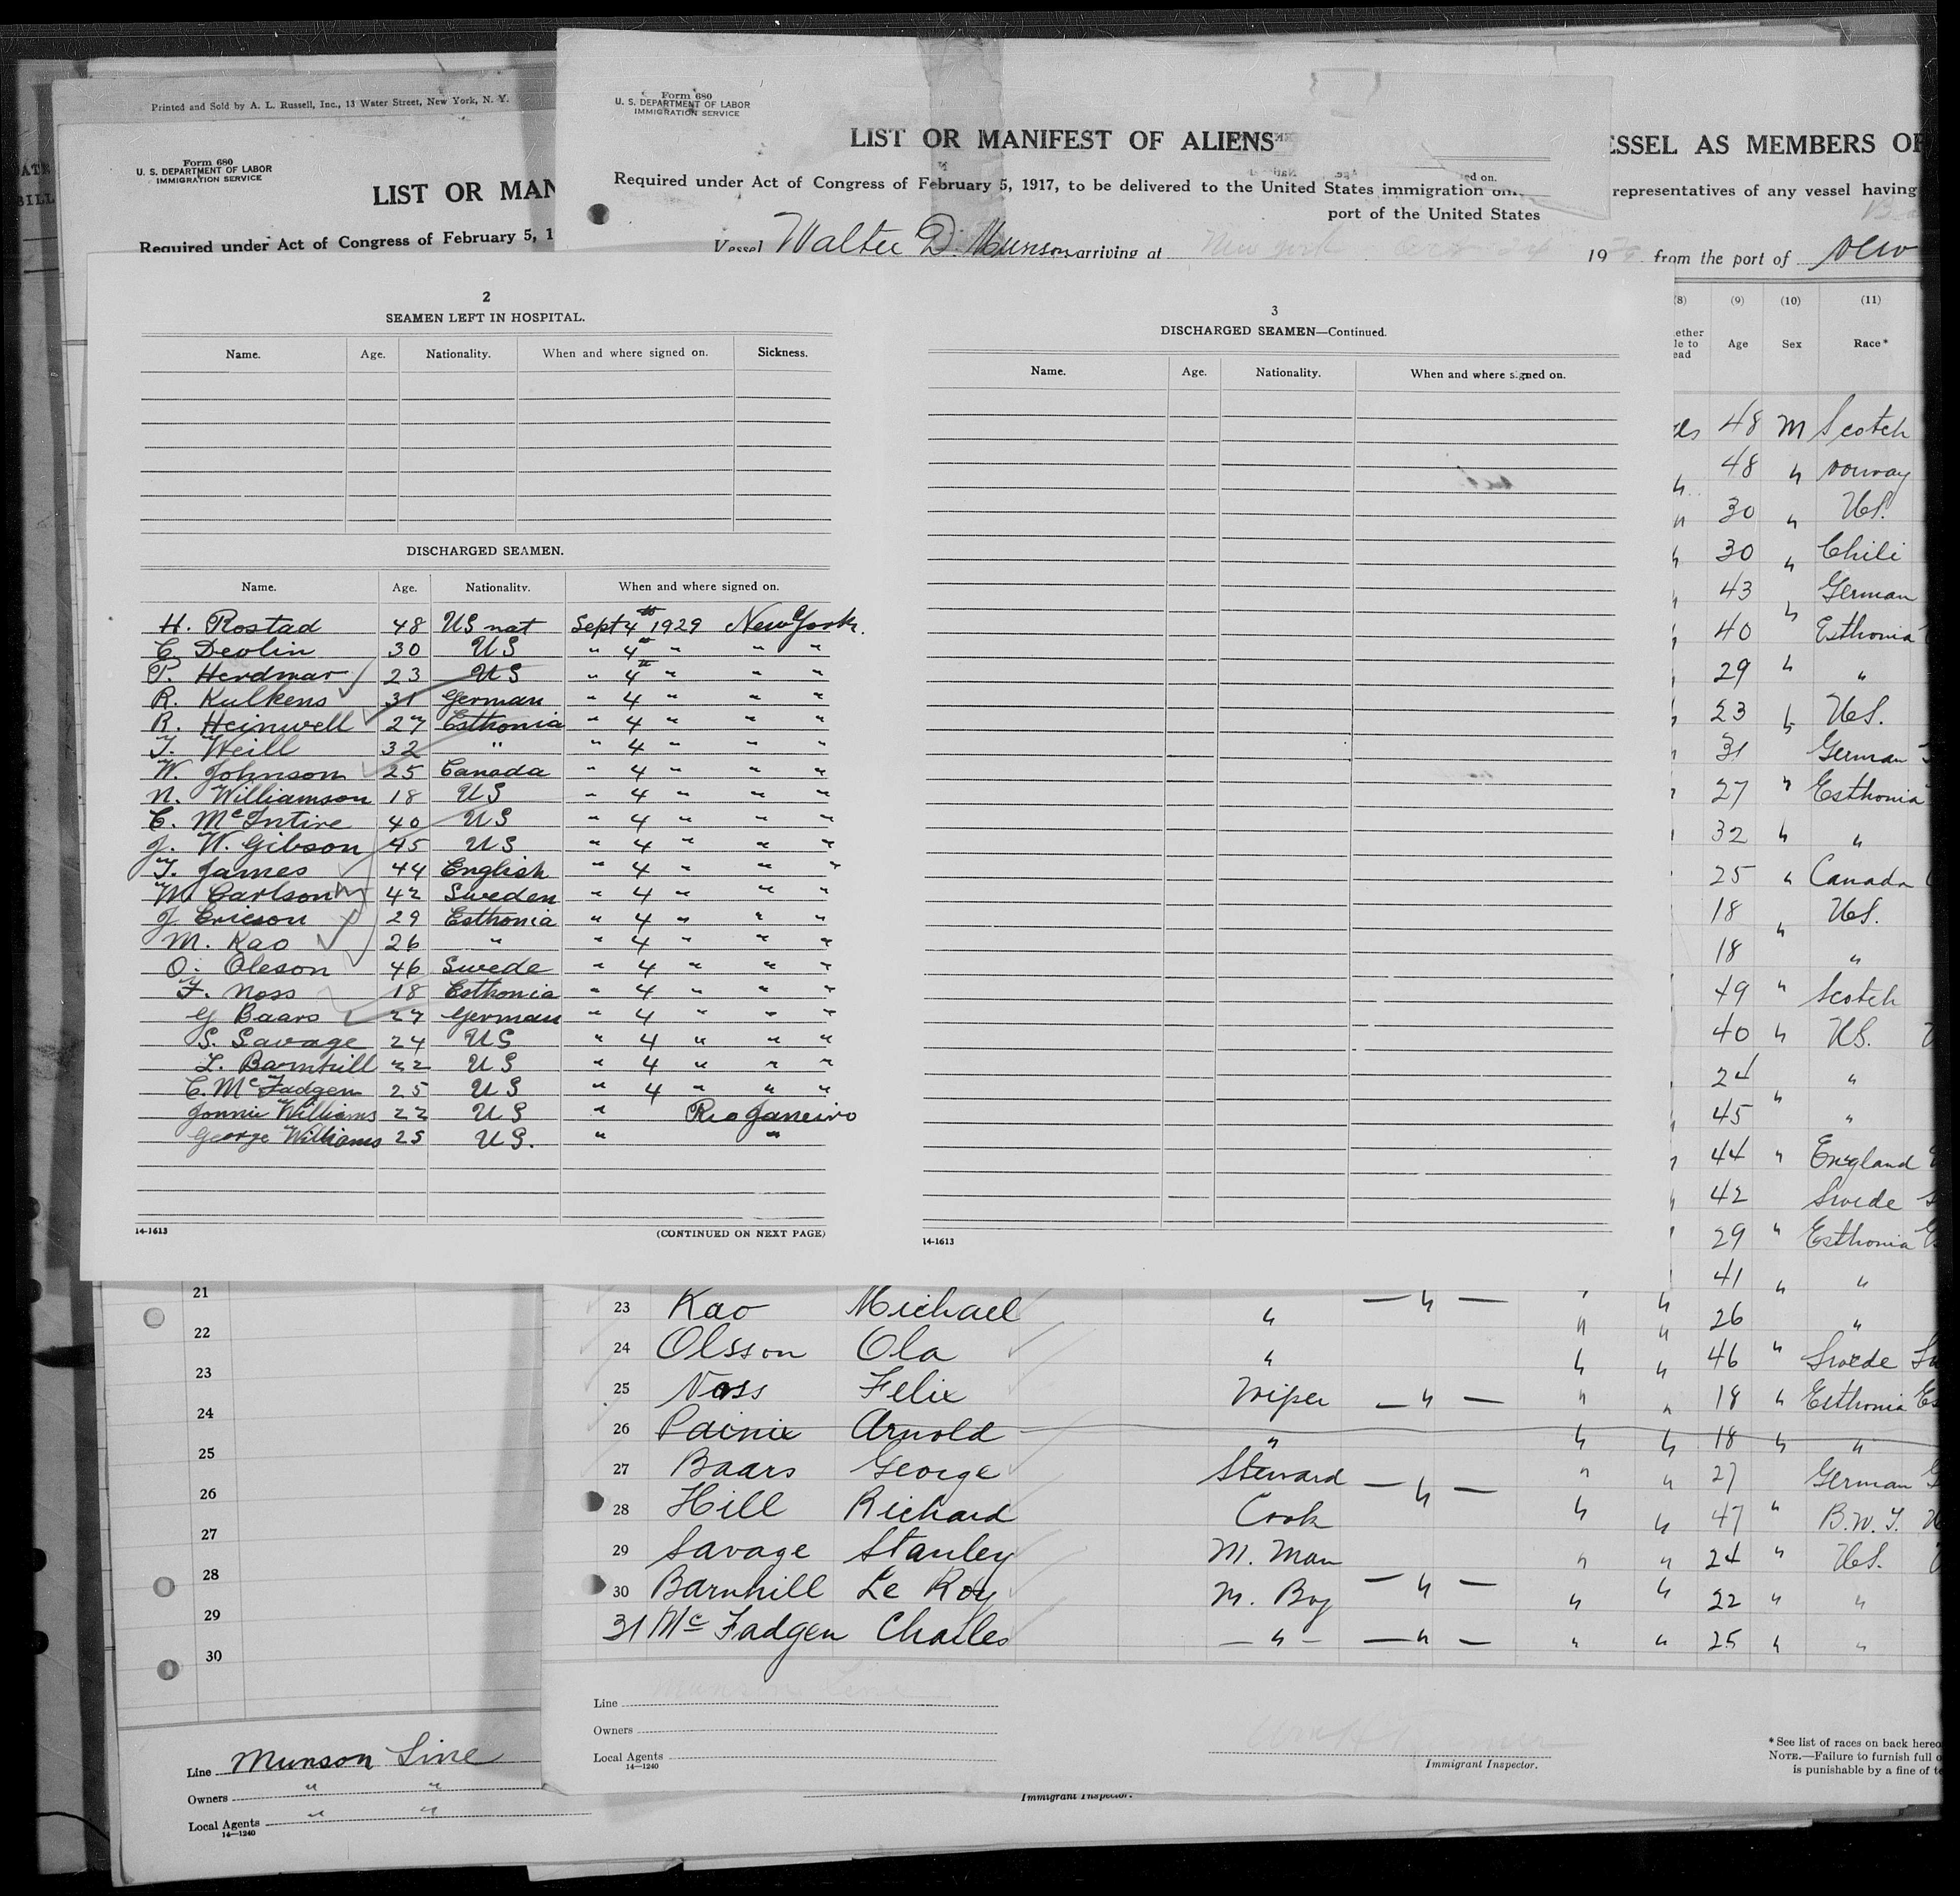 Printed and Sold by A. L. Russell, Inc., 13 Water Street, New York, N. Y.
Form 680
U. S. DEPARTMENT OF LABOR
IMMIGRATION SERVICE
LIST OR MAN
Required under Act of Congress of February 5, 1
Form 680
U. S. DEPARTMENT OF LABOR
IMMIGRATION SERVICE
LIST OR MANIFEST OF ALIENS
ESSEL AS MEMBERS OF
Required under Act of Congress of February 5, 1917, to be delivered to the United States immigration
representatives of any vessel having
port of the United States
Vessel Walter D. Munson arriving at New York Oct 24 19 from the port of New
2
SEAMEN LEFT IN HOSPITAL.
Name. Age. Nationality. When and where signed on. Sickness.
DISCHARGED SEAMEN.
Name. Age. Nationality. When and where signed on.
H. Rostad 48 US nat Sept 4th 1929 New York.
C. Devlin 30 US " 4th " " "
P. Herdmar 23 US " 4th " " "
R. Kulkens 31 German " 4 " " "
R. Heinwell 27 Esthonia " 4 " " "
T. Weill 32 " " 4 " " "
W. Johnson 25 Canada " 4 " " "
N. Williamson 18 US " 4 " " "
C. McIntire 40 US " 4 " " "
J. W. Gibson 45 US " 4 " " "
T. James 44 English " 4 " " "
W. Carlson 42 Sweden " 4 " " "
J. Ericson 29 Esthonia " 4 " " "
M. Kao 26 " " 4 " " "
O. Oleson 46 Swede " 4 " " "
F. Noss 18 Esthonia " 4 " " "
G Baars 27 German " 4 " " "
S. Savage 24 US " 4 " " "
L. Barnhill 22 US " 4 " " "
C. McFadgen 25 US " 4 " " "
Jonnie Williams 22 US " Rio Janeiro
George Williams 25 US. " "
14-1613
(CONTINUED ON NEXT PAGE)
3
DISCHARGED SEAMEN—Continued.
Name. Age. Nationality. When and where signed on.
14-1613
(8) (9) (10) (11)
Age Sex Race*
48 M Scotch
48 " Norway
30 " US.
30 " Chili
43 German
40 " Esthonia
29 " "
23 " US.
31 German
27 " Esthonia
32 " "
25 " Canada
18 US.
18 " "
49 " Scotch
40 " US.
24 "
45 " "
44 " England
42 Swede
29 " Esthonia
41 " "
23 Kao Michael " — " — " " 26 " "
24 Olsson Ola " " " 46 " Swede
25 Noss Felix Wiper — " — " " 18 " Esthonia
26 Arnold " " " 18 " "
27 Baars George Steward — " — " " 27 German
28 Hill Richard Cook " " 47 " B.W.I.
29 Savage Stanley M. Man " " 24 " US.
30 Barnhill Le Roy M. Boy — " — " " 22 " "
31 McFadgen Charles — " — — " — " " 25 " "
21
22
23
24
25
26
27
28
29
30
Line Munson Line
Owners " "
Local Agents " "
14—1240
Line Munson Line
Owners
Local Agents
14—1240
Immigrant Inspector.
Immigrant Inspector.
*See list of races on back hereo
NOTE.—Failure to furnish full o
is punishable by a fine of te